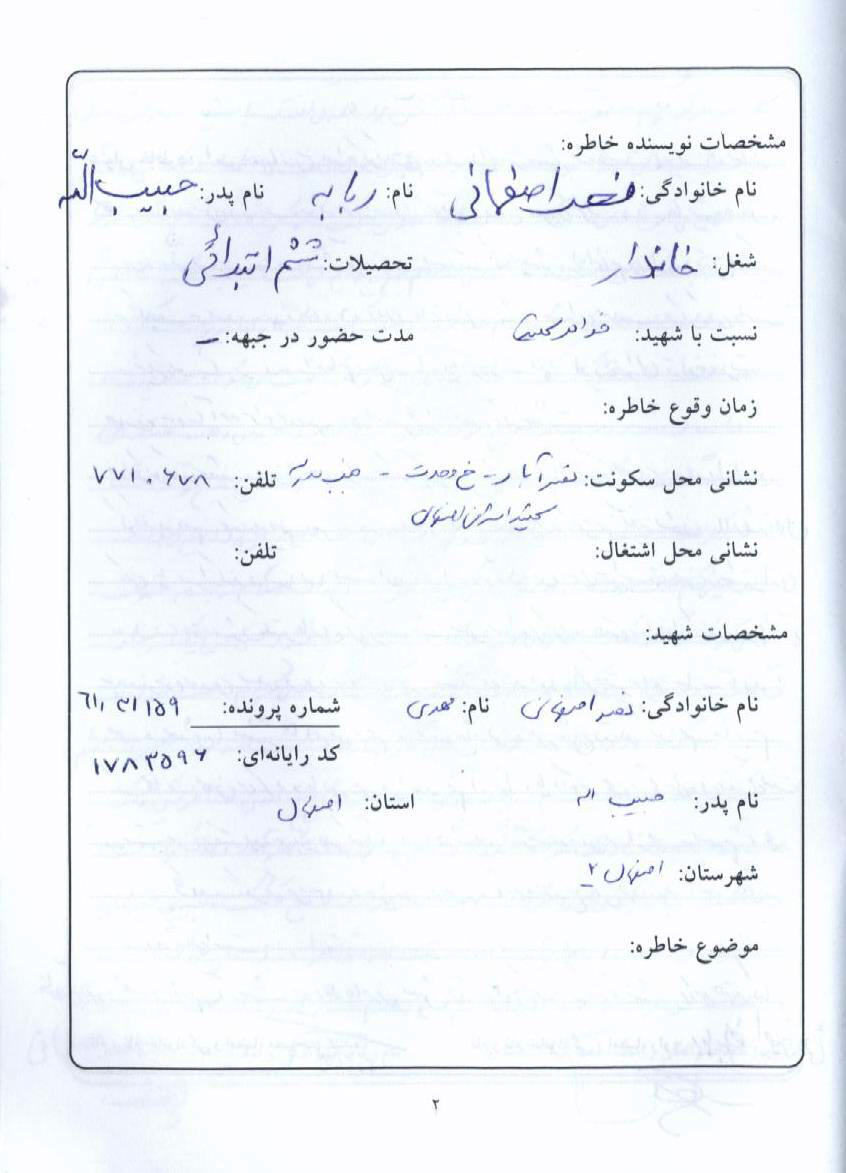 مشخصات نویسنده خاطره:
نام خانوادگی: نصر اصفهانی نام: ربابه نام پدر: حبیب الله
شغل: خاندار تحصیلات: ششم ابتدائی
نسبت با شهید: خواهر مدت حضور در جبهه: –
زمان وقوع خاطره:
نشانی محل سکونت: نصرآباد - خ وحدت - جنب تلفن: ۷۷۱۰۶۷۸
نشانی محل اشتغال: تلفن:
مشخصات شهید:
نام خانوادگی: نصر اصفهانی نام: مهدی شماره پرونده: ۶۱,۳۱۱۵۹
کد رایانه‌ای: ۱۷۸۳۵۹۶
نام پدر: حبیب اله استان: اصفهان
شهرستان: اصفهان ۲
موضوع خاطره:
۲